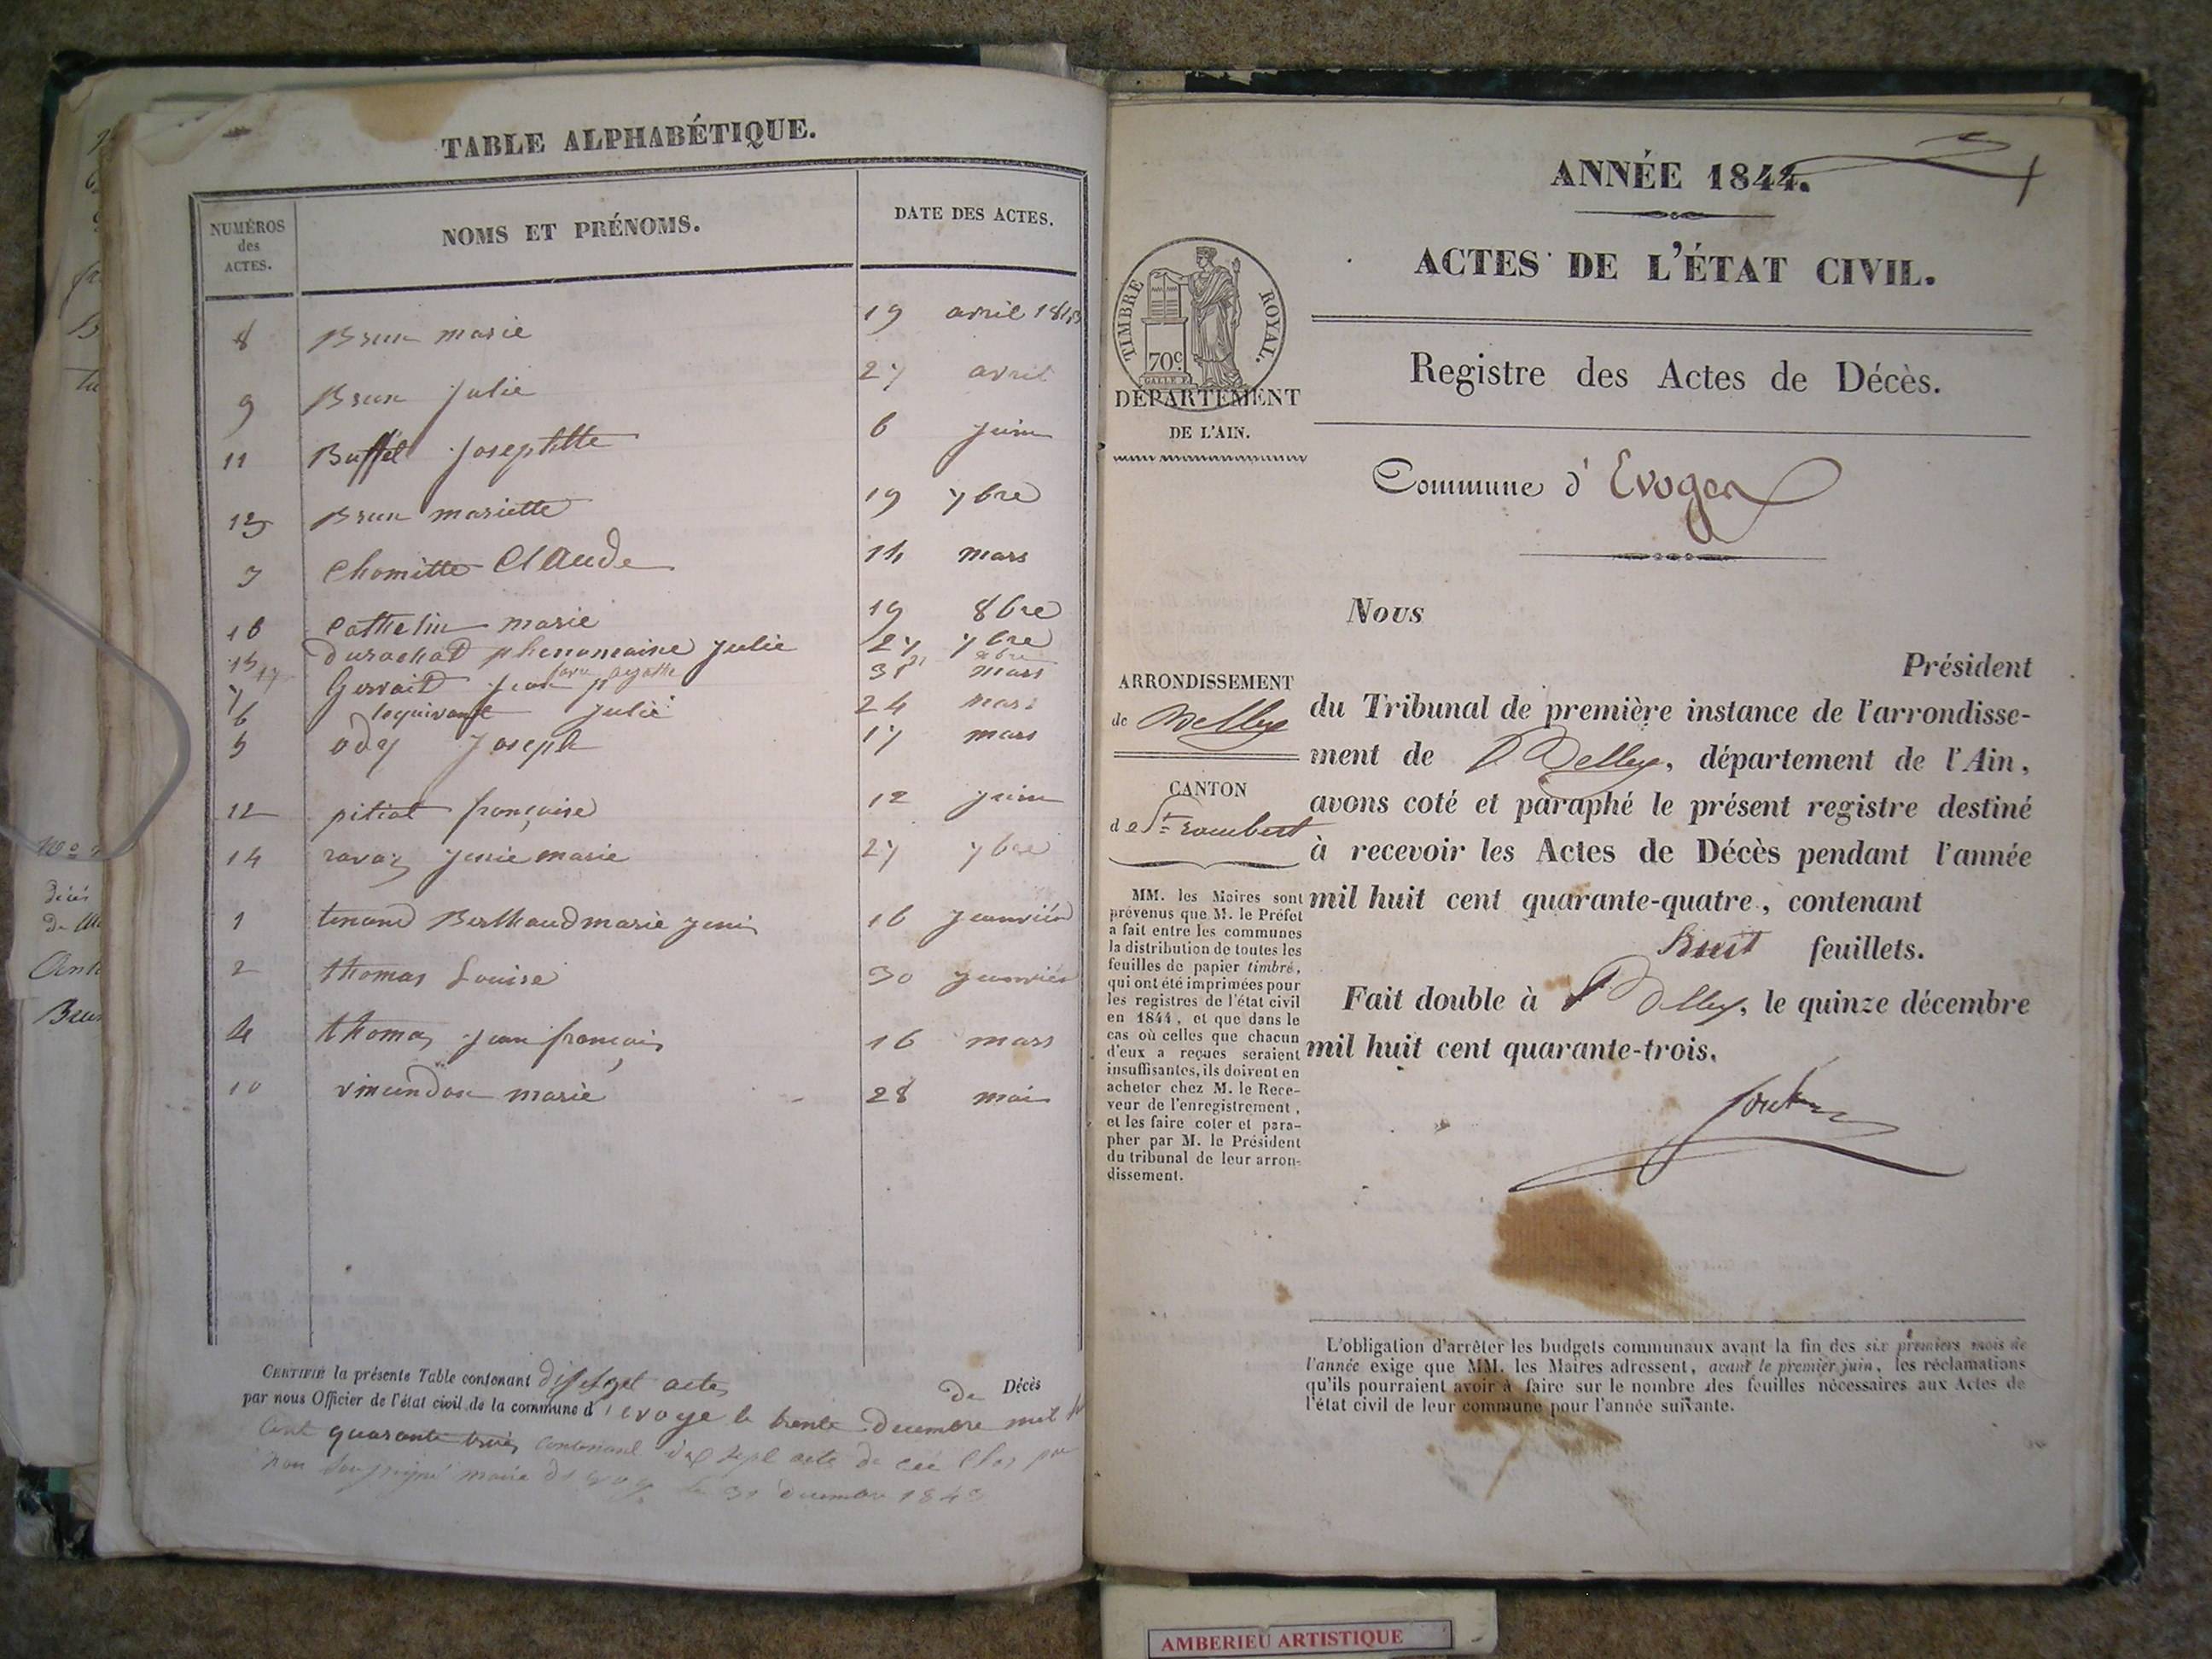 TABLE ALPHABÉTIQUE.
NUMÉROS des ACTES.
NOMS ET PRÉNOMS.
DATE DES ACTES.
8 Brun marie 19 avril 1843
9 Brun Julie 27 avril
11 Buffet Josephtte 6 juin
13 Brun mariette 19 7bre
3 Chomitte Claude 14 mars
16 Cathelin marie 19 8bre
15 durochat phenomaine Julie 27 7bre
17
7 Gervait Jean 31 mars
6 Julie 24 mars
5 ody Joseph 17 mars
12 pitiot françoise 12 juin
14 ravaz marie 27 7bre
1 tenand Berthaud marie 16 Janvier
2 thomas Louise 30 janvier
4 thomas jean françois 16 mars
10 vincendon marie 28 mai
CERTIFIÉ la présente Table contenant dix sept actes de Décès
par nous Officier de l'état civil de la commune d'evoge le trente decembre mil
Cent quarante trois, contenant dix sept acte de
maire 31 decembre 1843
ANNÉE 1844.
ACTES DE L'ÉTAT CIVIL.
TIMBRE ROYAL.
70c
DÉPARTEMENT
DE L'AIN.
Registre des Actes de Décès.
Commune d' Evoges
Nous
Président
ARRONDISSEMENT
de Belley
CANTON
de St rambert
du Tribunal de première instance de l'arrondisse-
ment de Belley, département de l'Ain,
avons coté et paraphé le présent registre destiné
à recevoir les Actes de Décès pendant l'année
mil huit cent quarante-quatre, contenant
huit feuillets.
Fait double à Belley, le quinze décembre
mil huit cent quarante-trois.
MM. les Maires sont
prévenus que M. le Préfet
a fait entre les communes
la distribution de toutes les
feuilles de papier timbré,
qui ont été imprimées pour
les registres de l'état civil
en 1844, et que dans le
cas où celles que chacun
d'eux a reçues seraient
insuffisantes, ils doivent en
acheter chez M. le Rece-
veur de l'enregistrement,
et les faire coter et para-
pher par M. le Président
du tribunal de leur arron-
dissement.
L'obligation d'arrêter les budgets communaux avant la fin des six premiers mois de
l'année exige que MM. les Maires adressent, avant le premier juin, les réclamations
qu'ils pourraient avoir à faire sur le nombre des feuilles nécessaires aux Actes de
l'état civil de leur commune pour l'année suivante.
AMBERIEU ARTISTIQUE